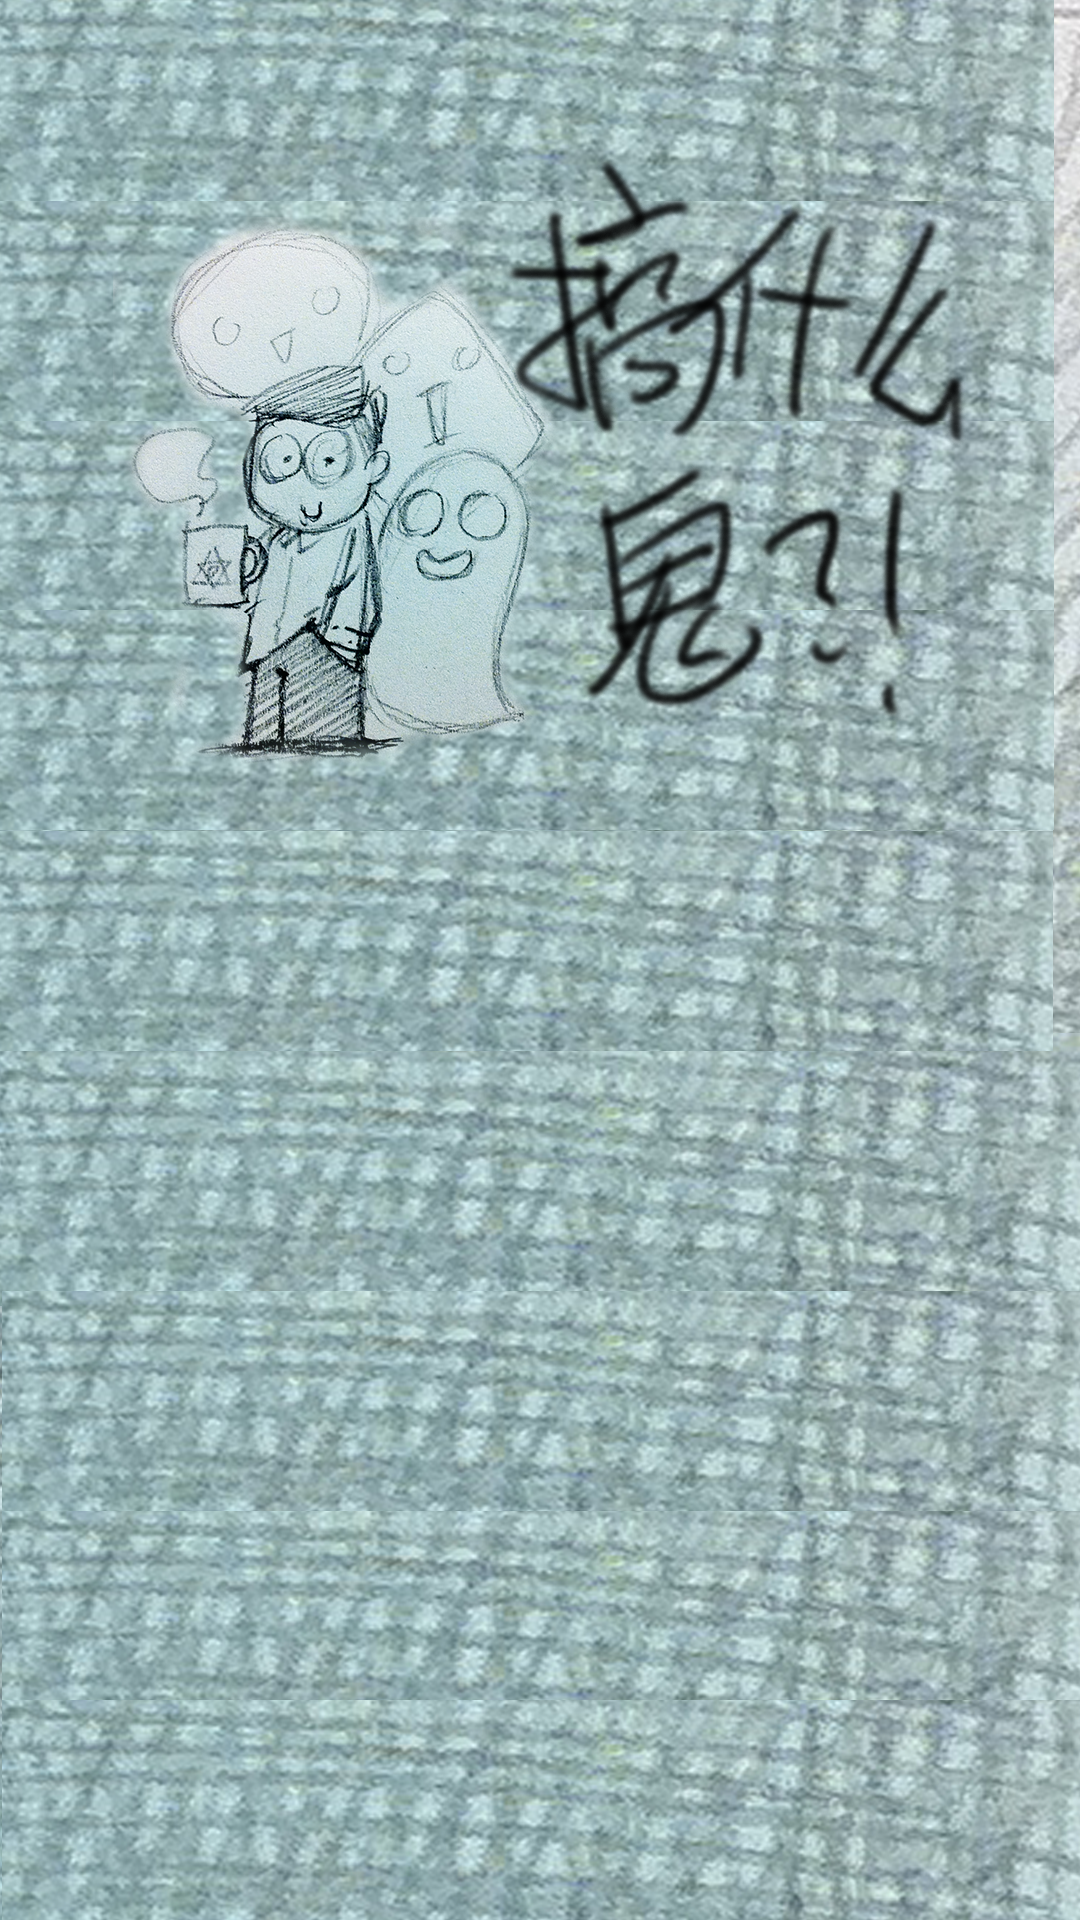 搞什么
鬼?!